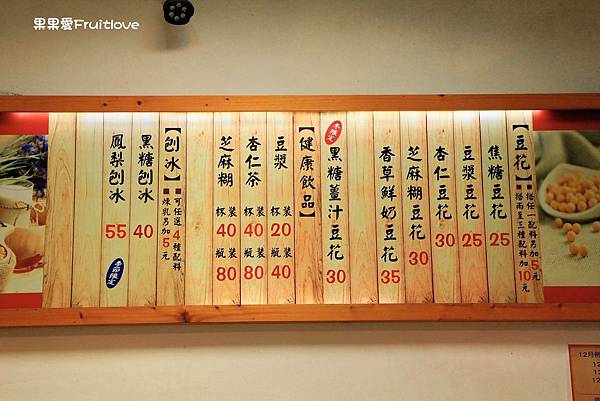 果果愛Fruitlove
【豆花】
■搭任一配料另加5元
■搭兩至三種配料加10元
焦糖豆花 25
豆漿豆花 25
杏仁豆花 30
芝麻糊豆花 30
香草鮮奶豆花 35
冬限定
黑糖薑汁豆花 30
【健康飲品】
豆漿 杯裝20 瓶裝40
杏仁茶 杯裝40 瓶裝80
芝麻糊 杯裝40 瓶裝80
【刨冰】
■可任選4種配料
■煉乳另加5元
黑糖刨冰 40
鳳梨刨冰 55
季節限定